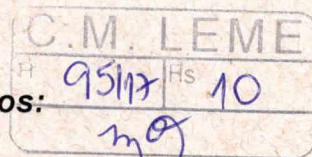 C.M. LEME
H 95/17 Hs 10
os: